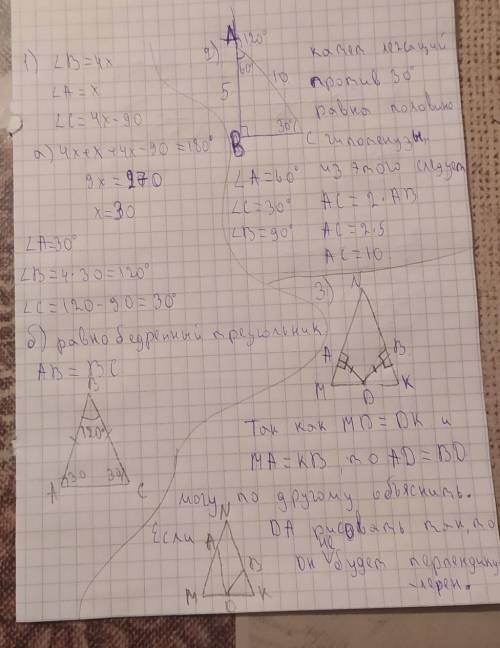 1) ∠B=4x
∠A=x
∠C=4x-90
а) 4x+x+4x-90=180°
9x=270
x=30
∠A=30°
∠B=4·30=120°
∠C=120-90=30°
б) равнобедренный треугольник
AB=BC
B
120°
A 30 30 C
2) A 120°
60°
5 10
30°
B C
∠A=60°
∠C=30°
∠B=90°
катет лежащий
против 30°
равна половино
гипотенузы
из этого следует
AC=2·AB
AC=2·5
AC=10
3) N
A B
M D K
Так как MD=DK и
MA=KB, то AD=BD
могу по другому объяснить.
Если DA рисовать так, то
он не будет перпендику
-лярен.
N
A
B
M D K